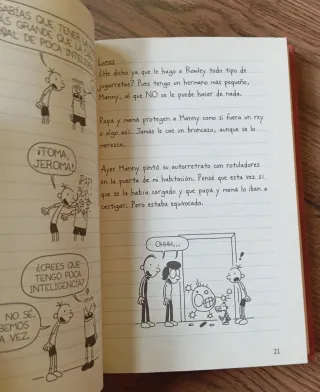 SABÍAS QUE TENER LA
MÁS GRANDE QUE LA
SEÑAL DE POCA INTELIGENCIA?
¡TOMA,
JEROMA!
PAF
¿CREES QUE
TENGO POCA
INTELIGENCIA?
NO SÉ.
A VEZ.
Lunes
¿He dicho ya que le hago a Rowley todo tipo de
jugarretas? Pues tengo un hermano más pequeño,
Manny, al que NO se le puede hacer de nada.
Papá y mamá protegen a Manny como si fuera un rey
o algo así. Jamás le cae un broncazo, aunque se lo
merezca.
Ayer Manny pintó su autorretrato con rotuladores
en la puerta de mi habitación. Pensé que esta vez sí
que se la había cargado y que papá y mamá lo iban a
castigar. Pero estaba equivocado.
OHHH...
21